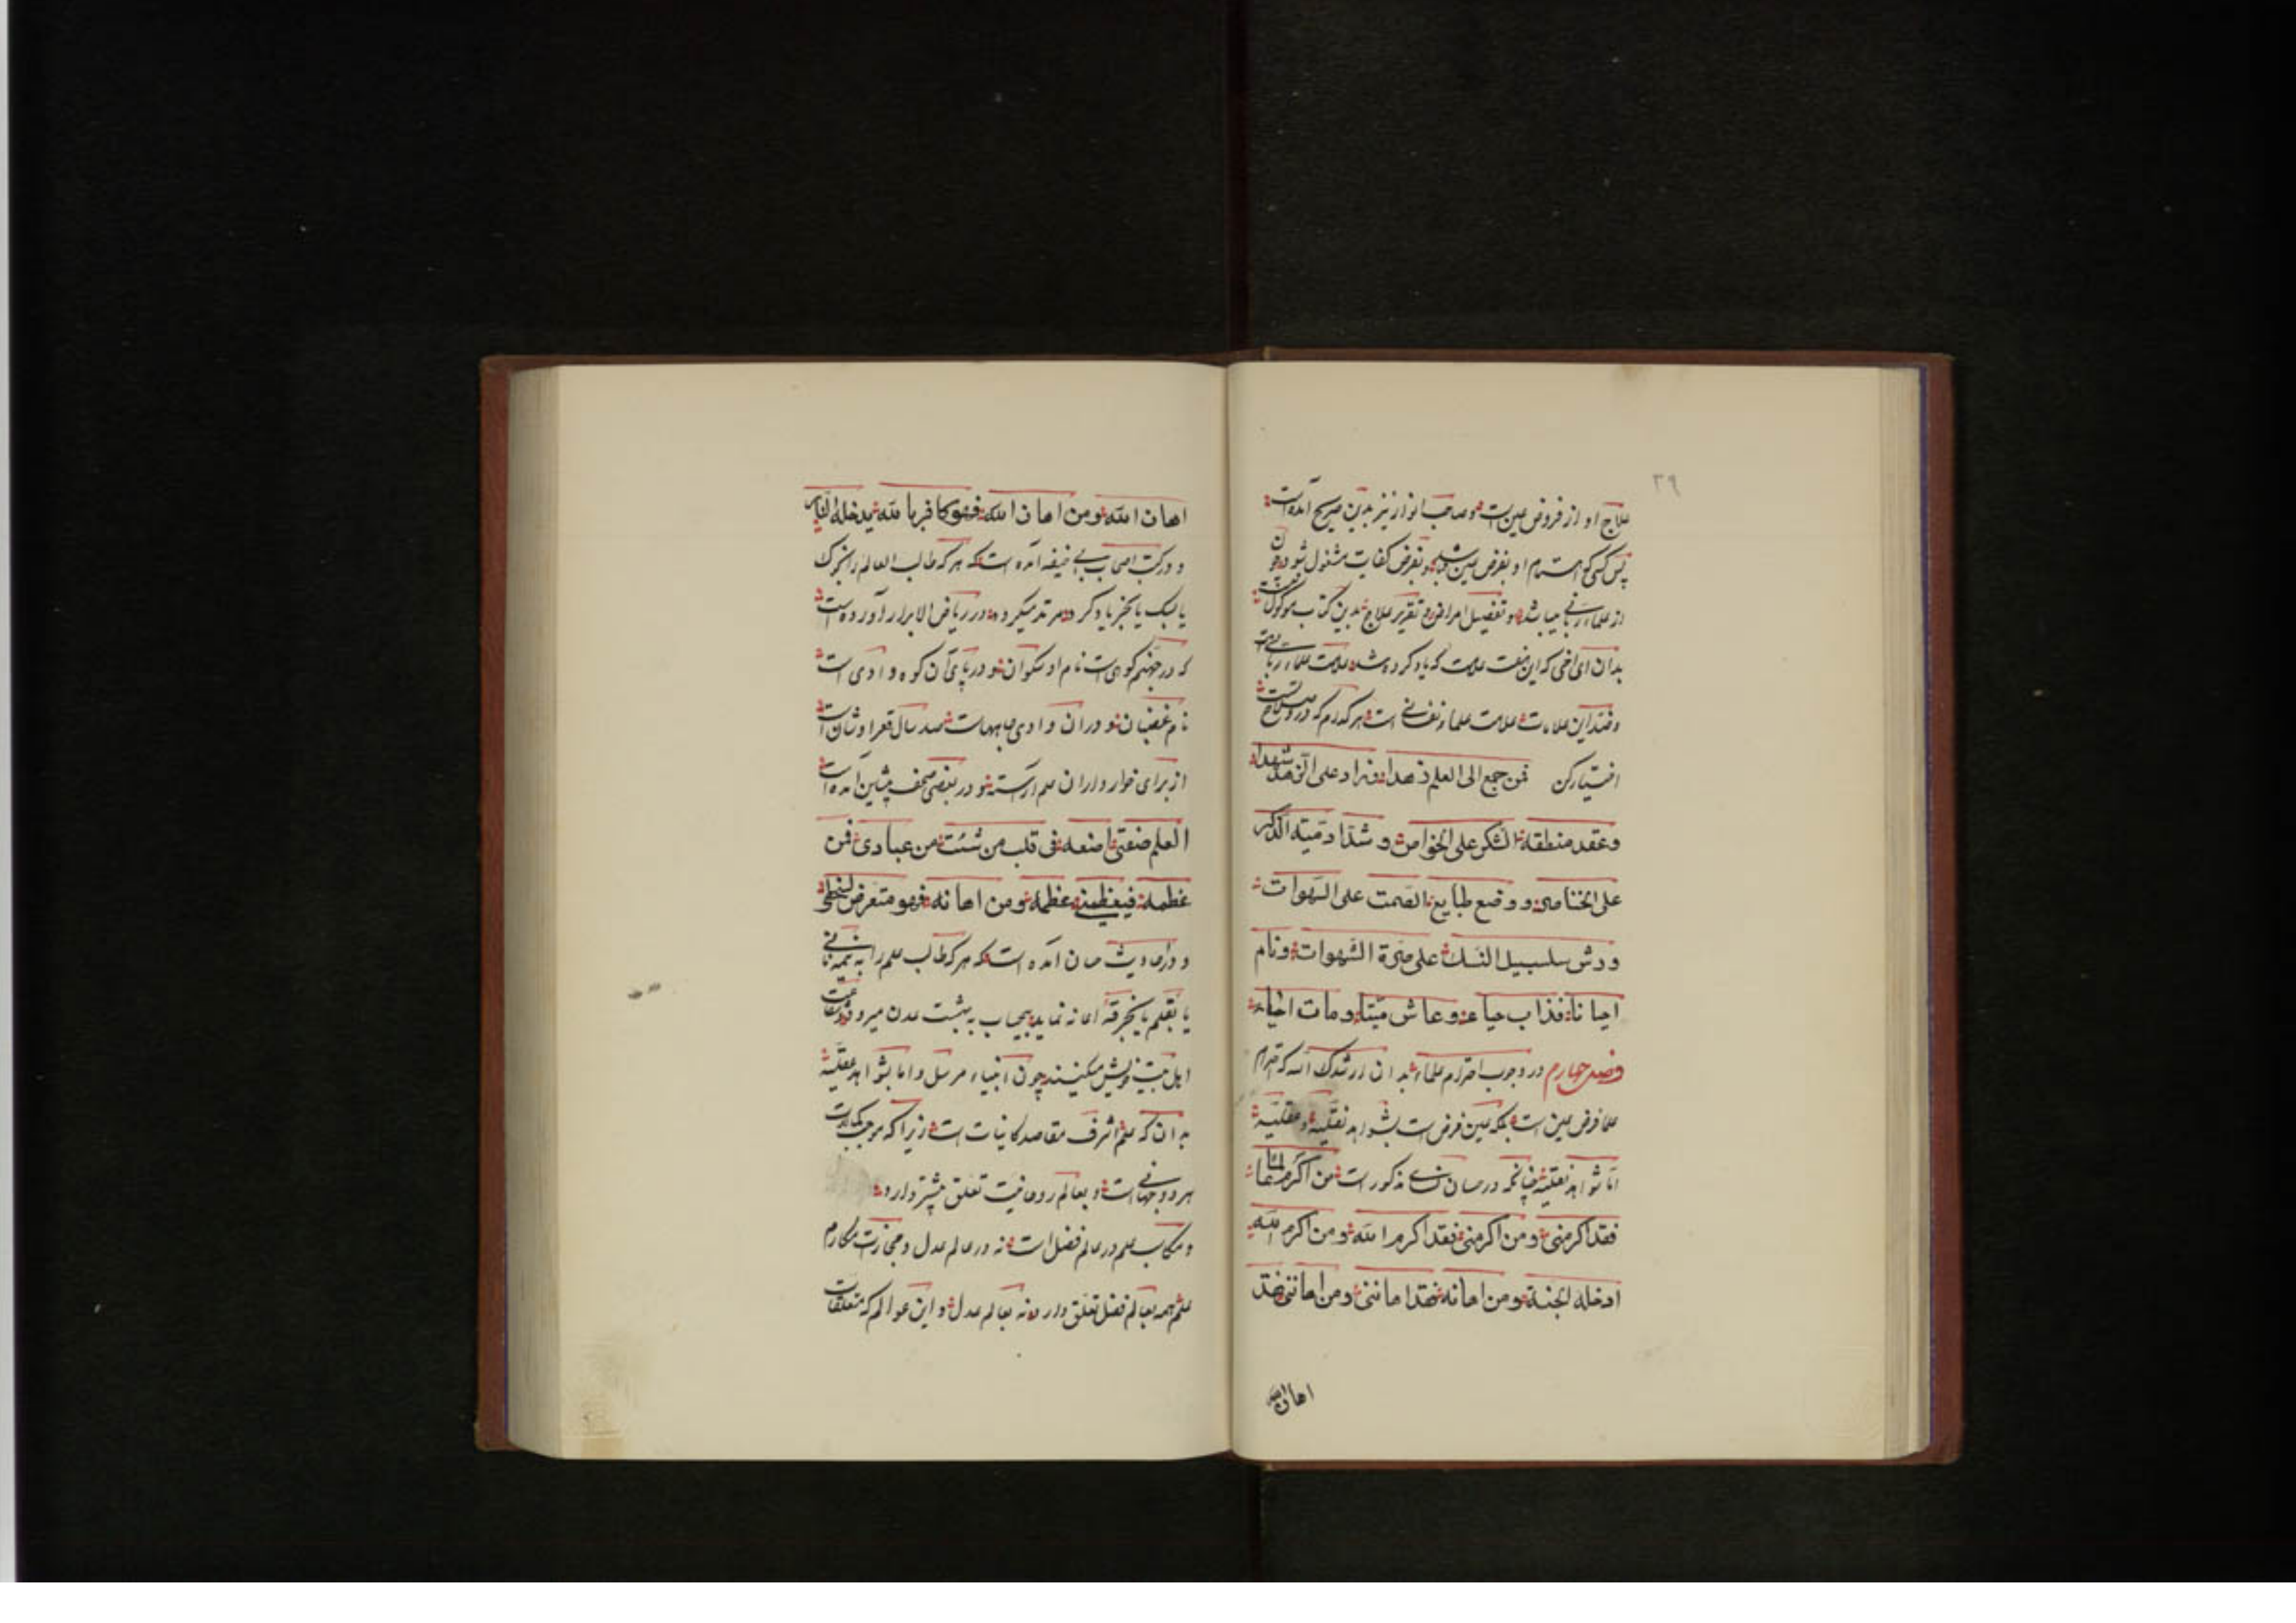 ٣٩
علاج او از فروض عین است و صاحب انوار نیز بدین صریح آمده است
پس کسی که اهتمام او بفرض عین باشد و بفرض کفایت مشغول شود
از علماء ربانی میباشد و تفصیل امراض و تقریر علاج بدین کتاب موکول
بدان ای اخی که این صفت علامت که یاد کرده شد علامت علماء ربانی است
وضد این علامات علامت علماء نفسانی است هرکدام که در و صلاح تست
اختیار کن فمن جمع الی العلم زهدا وزاد علی الزهد شهدا
وعقد منطقة الشکر علی الخواص وشد ادمیة الذکر
علی الخناصر ووضع طبایع الصمت علی السهوات
ورش سلسبیل النسك علی مرة الشهوات ونام
احیانا فذاب حیاء وعاش میتا ومات احیاء
فصل چهارم در وجوب احترام علماء بدان ارشدك الله که احترام
علما فرض عین است بلکه عین فرض است بشواهد نقلیة وعقلیة
اما شواهد نقلیة چنانچه در حسان مذکور است من اکرم عالما
فقد اکرمنی ومن اکرمنی فقد اکرم الله ومن اکرم الله
ادخله الجنة ومن اهانه فقد اهاننی ومن اهاننی فقد
اهان الله
اهان الله ومن اهان الله فهو کافر بالله یدخله النار
و در کتب اصحاب ابی حنیفه آمده است که هرکه طالب العلم را
یا لبك یا بخبر یاد کرد مرتد میگردد و در ریاض الابرار آورده است
که در جهنم کوهی است نام او سکران و در پای آن کوه وادی است
نام غضبان و در ان وادی چاههاست صد سال قعر اوشان است
از برای خوارداران علم آراسته و در بعضی صحف پیشین آمده است
العلم صنعتی اضعه فی قلب من شئت من عبادی فمن
عظمه فبعظمتی عظمه ومن اهانه فهو متعرض لسخطی
و در احادیث حسان آمده است که هرکه طالب علم را
یا بقلم یا بخرقة اعانه نماید بیحساب به بهشت عدن میرود وشفاعت
اهل بیت خویش میکنند چون انبیاء مرسل واما بشواهد عقلیة
بدان که علم اشرف مقاصد کاینات است زیرا که موجب کمالات
هر دو جهانی است و بعالم روحانیت تعلق بیشتر دارد
و مکاسب علم در عالم فضل است نه در عالم عدل و مجازات مکارم
علم همه بعالم فضل تعلق دارد نه بعالم عدل و این عوالم که متعلقات